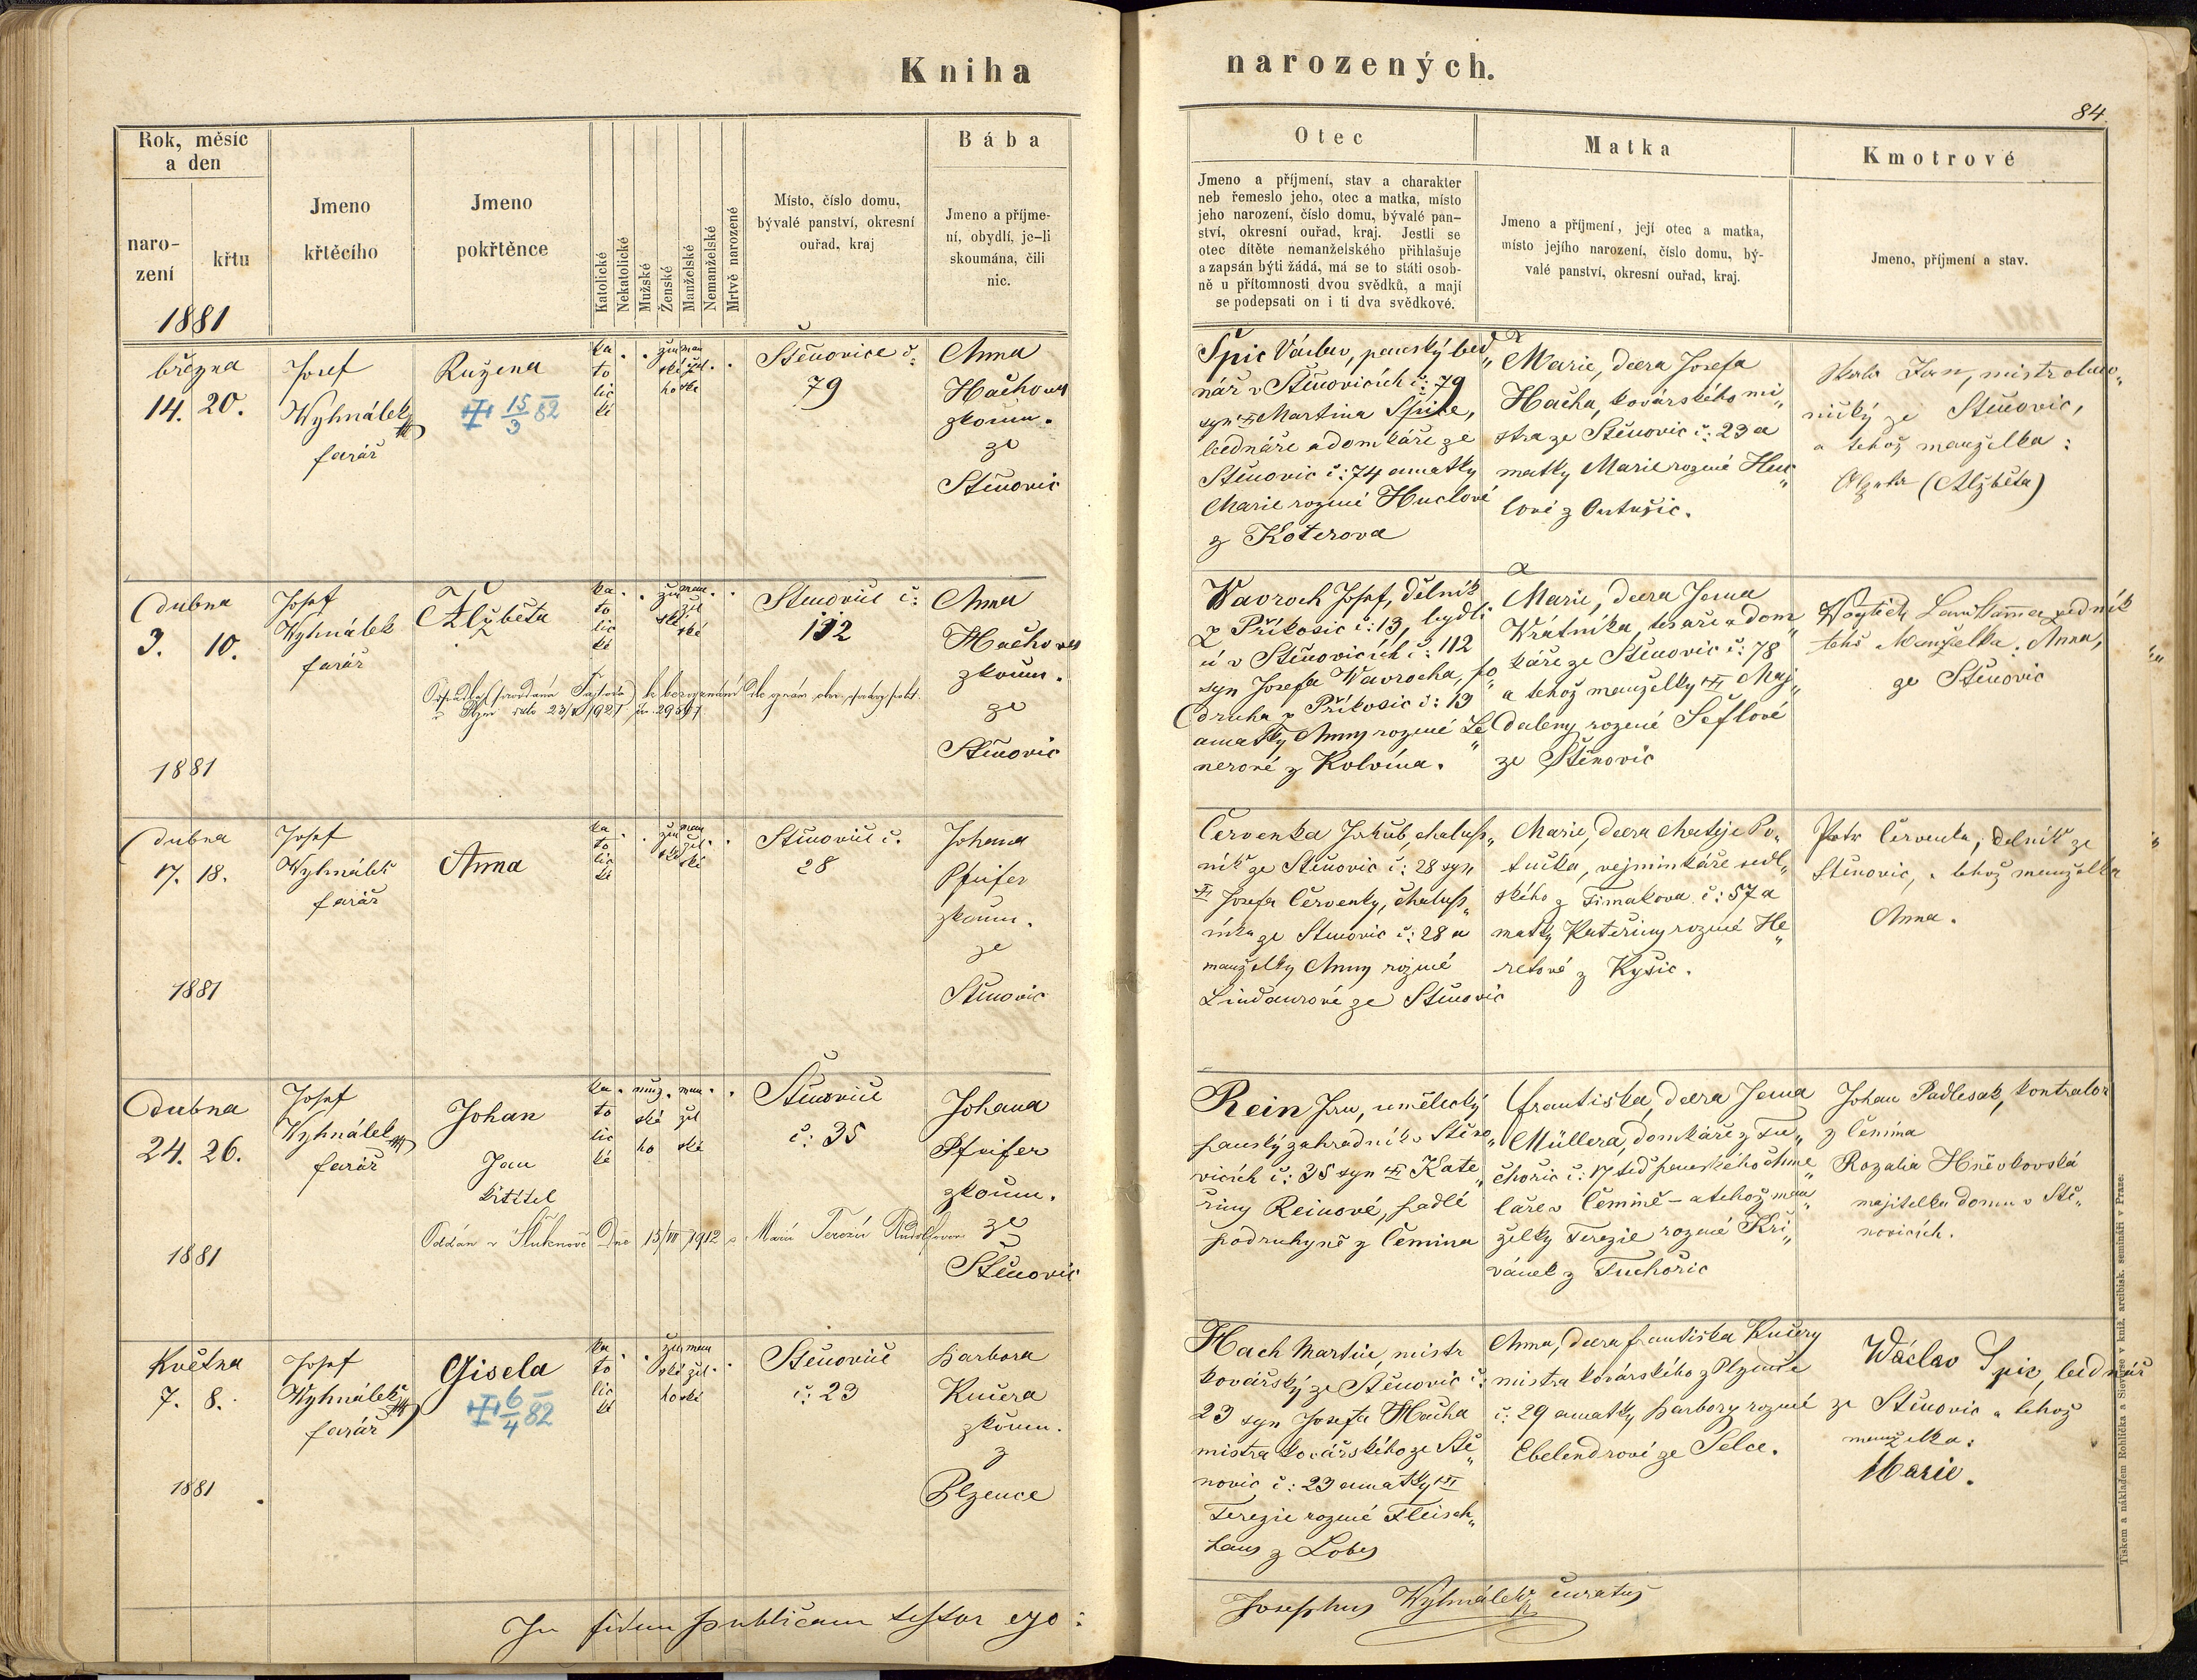 Kniha
narozených.
84.
Rok, měsíc
a den
naro-
zení
křtu
1881
Jmeno
křtěcího
Jmeno
pokřtěnce
Katolické
Nekatolické
Mužské
Ženské
Manželské
Nemanželské
Mrtvě narozené
Místo, číslo domu,
bývalé panství, okresní
ouřad, kraj
Bába
Jmeno a příjme-
ní, obydlí, je-li
skoumána, čili
nic.
Otec
Jmeno a příjmení, stav a charakter
neb řemeslo jeho, otec a matka, místo
jeho narození, číslo domu, bývalé pan-
ství, okresní ouřad, kraj. Jestli se
otec dítěte nemanželského přihlašuje
a zapsán býti žádá, má se to státi osob-
ně u přítomnosti dvou svědků, a mají
se podepsati on i ti dva svědkové.
Matka
Jmeno a příjmení, její otec a matka,
místo jejího narození, číslo domu, bý-
valé panství, okresní ouřad, kraj.
Kmotrové
Jmeno, příjmení a stav.
března
14. 20.
Josef
Wyhnálek
farář
Ružena
15/3 82
ka
to
lic
ké
žen
ské
ho
man
žel
ské
Štěnovice č:
79
Anna
Hachova
zkoum.
ze
Štěnovic
Špic Václav, panský bed„
nář v Štěnovicích č: 79
syn Martina Špice,
bednáře a domkáře ze
Štěnovic č: 74 a matky
Marie rozené Huclové
z Koterova
Marie, dcera Josefa
Hacha, kovářského mi„
stra ze Štěnovic č: 23 a
matky Marie rozené Huc„
lové z Outušic.
Jan, mistr
ze Štěnovic,
a tehož manželka:
(Alžběta)
Dubna
3. 10.
1881
Josef
Wyhnálek
farář
Alžběta
ka
to
lic
ké
žen
ské
man
žel
ské
Štěnovice č:
112
Anna
Hachova
zkoum.
ze
Štěnovic
Wavroch Josef, dělník
z Příkosic č: 13, bydlí
cí v Štěnovicích č: 112
syn Josefa Wavrocha, po„
druha z Příkosic č: 13
a matky Anny rozené Le„
nerové z Kolvína.
Marie, dcera Jana
Vrátníka, tesaře a dom„
káře ze Štěnovic č: 78
a tehož manželky Maj„
daleny rozené Šeflové
ze Štěnovic
Wojtěch zedník
tehož Manželka Anna,
ze Štěnovic
Dubna
17. 18.
1881
Josef
Wyhnálek
farář
Anna
ka
to
lic
ké
žen
ské
man
žel
ské
Štěnovice č.
28
Johana
Pfeifer
zkoum.
ze
Štěnovic
Červenka Jakub, chalup„
ník ze Štěnovic č: 28 syn
Josefa Červenky, chalup„
níka ze Štěnovic č: 28 a
manželky Anny rozené
Lindaurové ze Štěnovic
Marie, dcera Matěje Po„
tučka, vejminkáře sedl„
ského z Timakova č: 57 a
matky Kateřiny rozené He„
rétové z Kyšic.
Petr Červenka, dělník ze
Štěnovic, a tehož manželka
Anna.
Dubna
24. 26.
1881
Josef
Wyhnálek
farář
Johan
Jan
křtitel
Oddán v Šluknově Dne 15/VII 1912 s Marií Terezií
ka
to
lic
ké
muž
ské
ho
man
žel
ské
Štěnovice
č: 35
Johana
Pfeifer
zkoum.
ze
Štěnovic
Rein Jan, umělecký
panský zahradník v Štěno„
vicích č: 35 syn Kate„
řiny Reinové, padlé
podruhyně z Čemina
Františka, dcera Jana
Müllera, domkáře z Tu„
chořic č: 17 teď panského chme„
laře v Čemině – a tehož man„
želky Terezie rozené Kři„
vánek z Tuchořic
Johan Padlesak, kontralor
z Čemína
Rozalia Hněvkovská
majitelka domu v Ště„
novicích.
Května
7. 8.
1881
Josef
Wyhnálek
farář
Gisela
6/4 82
ka
to
lic
ké
žen
ské
ho
man
žel
ské
Štěnovice
č: 23
Barbora
Kučera
zkoum.
z
Plzence
Hach Martin, mistr
kovářský ze Štěnovic č:
23 syn Josefa Hacha
mistra kovářského ze Ště„
novic č: 23 a matky
Terezie rozené Fleisch„
hans z Lobes
Anna, dcera Františka Kučery
mistra kovářského z Plzence
č: 29 a matky Barbory rozené
Ebelendrové ze Selce.
Wáclav Špic, bednář
ze Štěnovic a tehož
manželka:
Marie.
In fidem publicam testor ego:
Josephus Wyhnálek, curatus
Tiskem a nákladem Rohlíčka a Sieverse v kníž. arcibisk. semináři v Praze.